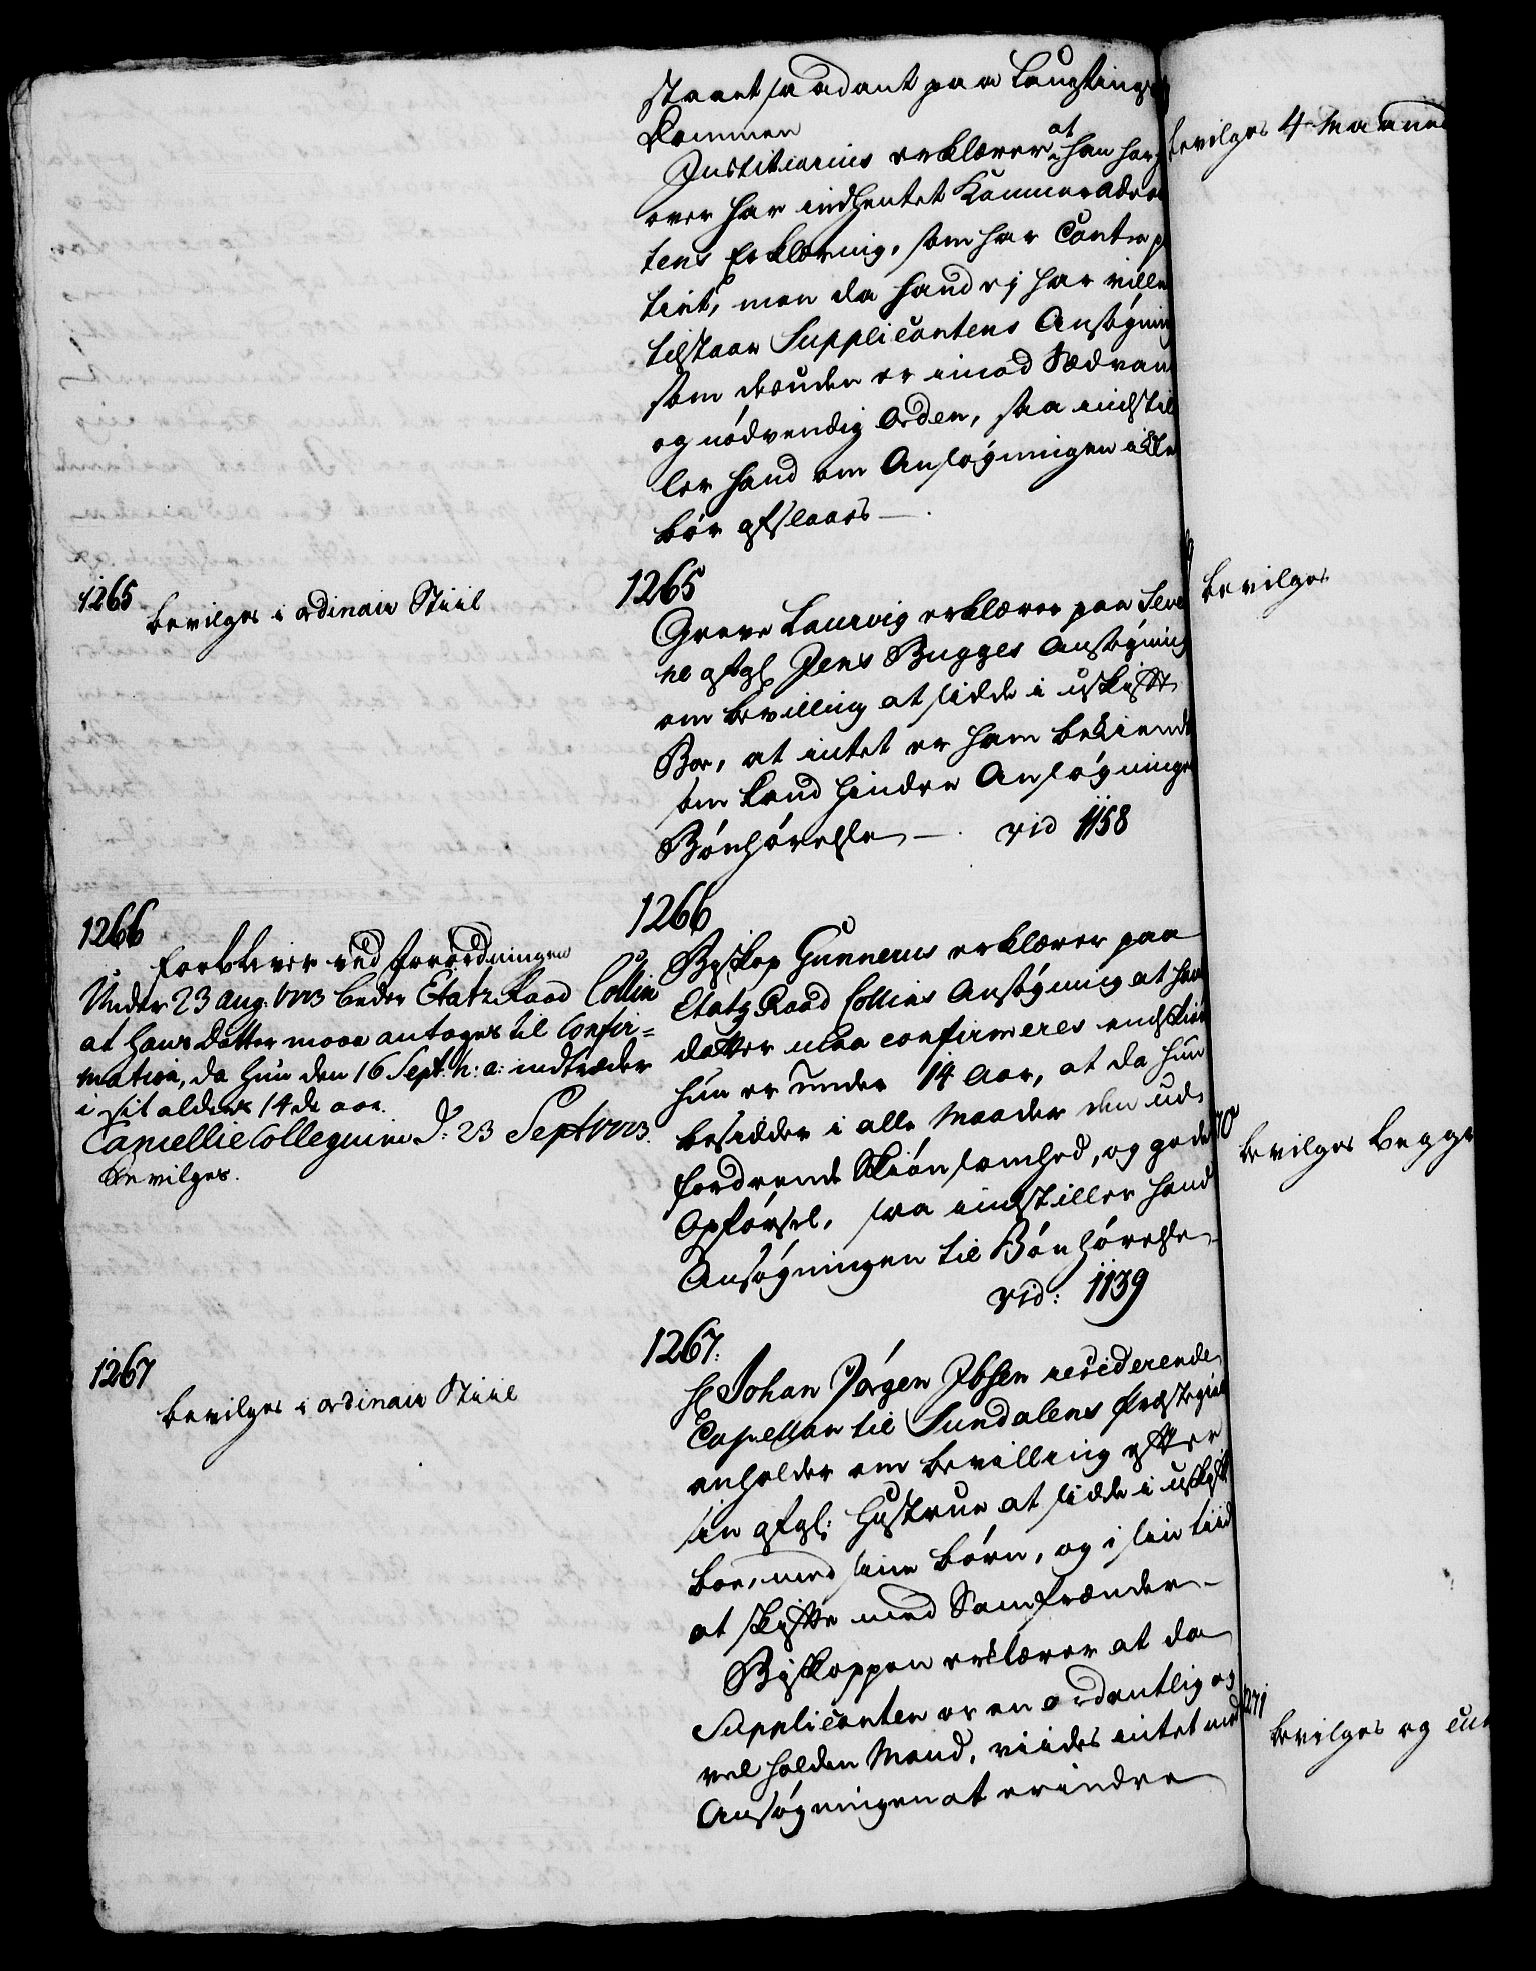 staaet saadant paa Laugtings
Dommen
Justitiarius erklærer at han her
over har indhentet Kammeradvoca
tens Erklæring, som har
tirt, men da hand ej har villet
tilstaae Supplicantens Ansøgning
som desuden er imod Sædvan
og nødvendig Orden, saa indstil
ler hand om Ansøgningen ikke
bør afslaaes —.
1265
bevilges i ordinair Stiil
1265
Greve Laurvig erklærer paa
afgl. Jens Bugges Ansøgning
om bevilling at sidde i uskift
Boe, at intet er ham bekiendt
som kand hindre Ansøgningen
Bønhørelse —. vid 1158
1266
forbliver ved forordningen
Under 23 aug. 1773 beder Etatz Raad Collin
at hans datter maae antages til Confir=
mation, da hun den 16 Sept: h: a: indtræder
i sit alders 14de aar.
Cancellie Collegium D: 23 Sept 1773.
bevilges.
1266
Biskop Gunnerus erklærer paa
Etatz Raad Collins Ansøgning at hans
datter maa confirmeres endskiønt
hun er under 14 Aar, at da hun
besidder i alle Maader den ud-
fordrende Skiønsomhed, og gode
Opførsel, saa indstiller hand
Ansøgningen til Bønhørelse
vid: 1139
1267
bevilges i ordinair Stiil
1267:
Hr Johan Jørgen Ibsen residerende
Capellan til Sundalens Præstegield
anholder om bevilling efter
sin afgl: Hustrue at sidde i uskift
boe, med sine børn, og i sin tiid
at skifte med Samfrænder —
Biskoppen erklærer at da
Supplicanten er en ordentlig og
vel holden Mand, viides intet ved
Ansøgningen at erindre
bevilges 4 Maaned
bevilges
70
bevilges begge
1271
bevilges og